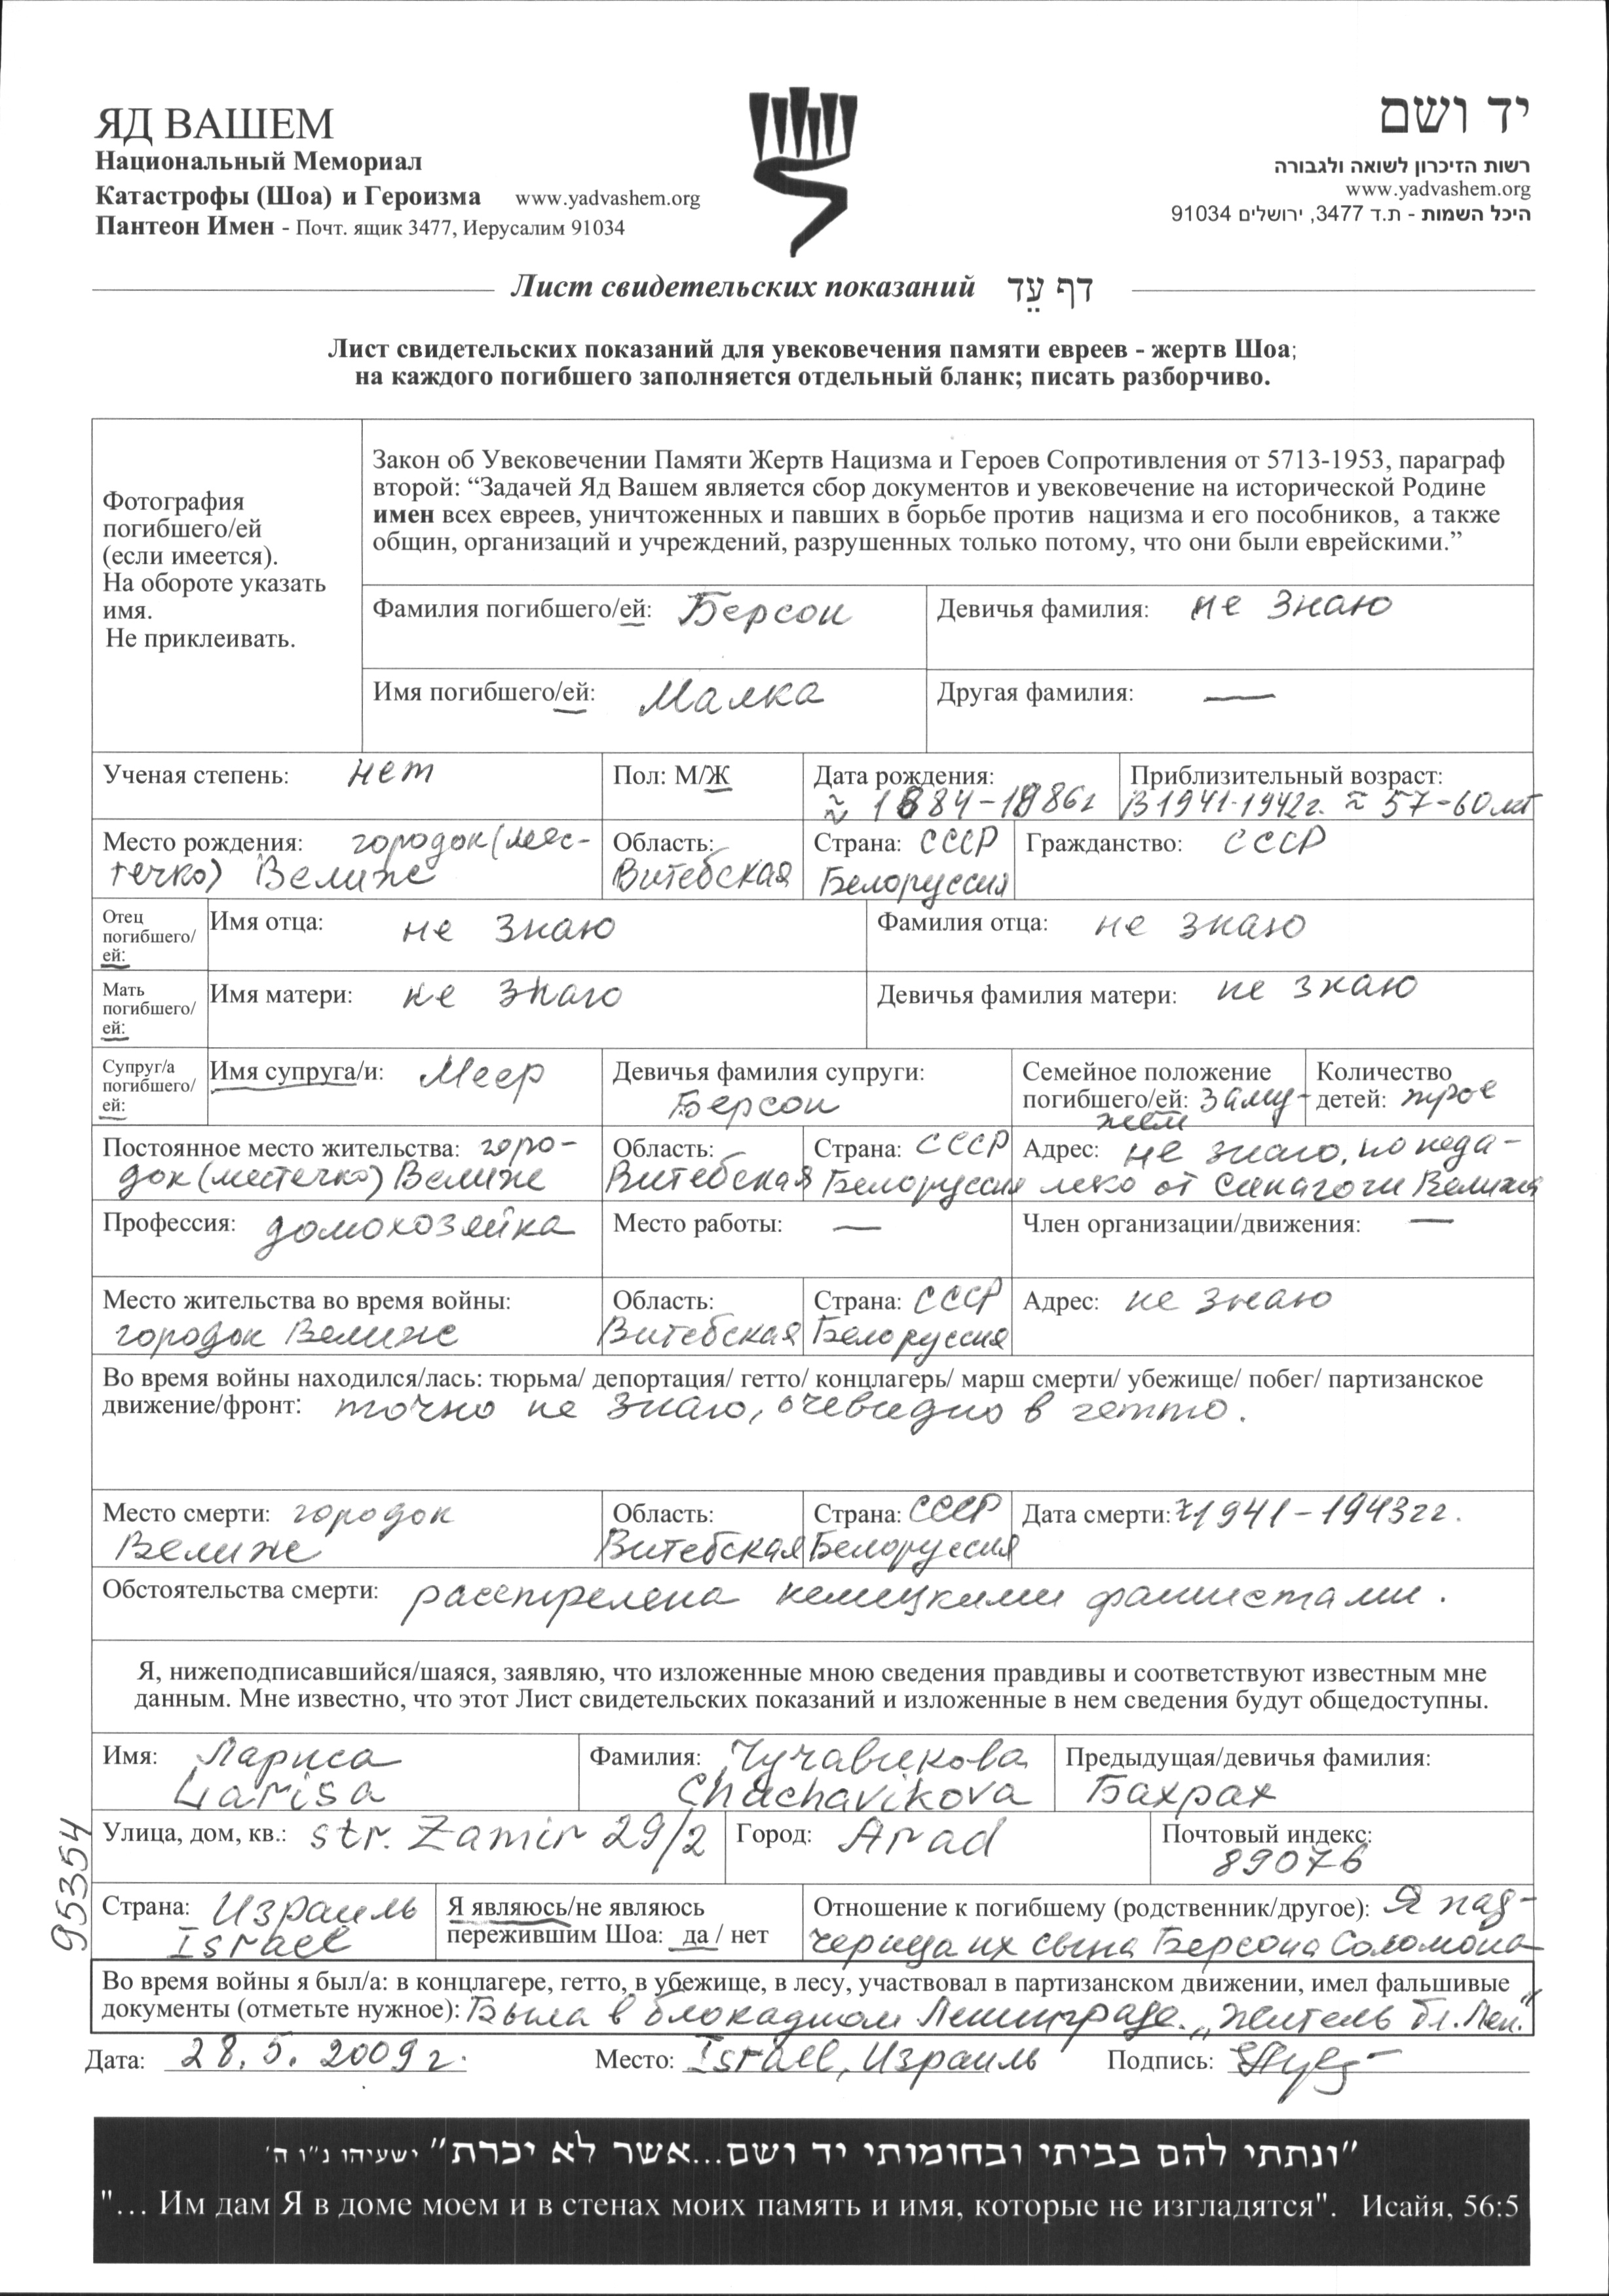 ЯД ВАШЕМ
Национальный Мемориал
Катастрофы (Шоа) и Героизма www.yadvashem.org
Пантеон Имен - Почт. ящик 3477, Иерусалим 91034
יד ושם
רשות הזיכרון לשואה ולגבורה
www.yadvashem.org
היכל השמות - ת.ד 3477, ירושלים 91034
Лист свидетельских показаний דף עֵד
Лист свидетельских показаний для увековечения памяти евреев - жертв Шоа;
на каждого погибшего заполняется отдельный бланк; писать разборчиво.
Фотография
погибшего/ей
(если имеется).
На обороте указать
имя.
Не приклеивать.
Закон об Увековечении Памяти Жертв Нацизма и Героев Сопротивления от 5713-1953, параграф
второй: “Задачей Яд Вашем является сбор документов и увековечение на исторической Родине
имен всех евреев, уничтоженных и павших в борьбе против нацизма и его пособников, а также
общин, организаций и учреждений, разрушенных только потому, что они были еврейскими.”
Фамилия погибшего/ей: Берсон
Девичья фамилия: не знаю
Имя погибшего/ей: Малка
Другая фамилия: —
Ученая степень: нет
Пол: М/Ж
Дата рождения:
≈ 1884-1886г
Приблизительный возраст:
В 1941-1942г. ≈ 57-60 лет
Место рождения: городок (мес-
течко) Велиже
Область:
Витебская
Страна: СССР
Белоруссия
Гражданство: СССР
Отец
погибшего/
ей:
Имя отца: не знаю
Фамилия отца: не знаю
Мать
погибшего/
ей:
Имя матери: не знаю
Девичья фамилия матери: не знаю
Супруг/а
погибшего/
ей:
Имя супруга/и: Меер
Девичья фамилия супруги:
Берсон
Семейное положение
погибшего/ей: заму-
жем
Количество
детей: трое
Постоянное место жительства: горо-
док (местечко) Велиже
Область:
Витебская
Страна: СССР
Белоруссия
Адрес: не знаю, но неда-
леко от Синагоги Велижа
Профессия: домохозяйка
Место работы: —
Член организации/движения: —
Место жительства во время войны:
городок Велиже
Область:
Витебская
Страна: СССР
Белоруссия
Адрес: не знаю
Во время войны находился/лась: тюрьма/ депортация/ гетто/ концлагерь/ марш смерти/ убежище/ побег/ партизанское
движение/фронт: точно не знаю, очевидно в гетто.
Место смерти: городок
Велиже
Область:
Витебская
Страна: СССР
Белоруссия
Дата смерти: ≈1941-1943гг.
Обстоятельства смерти: расстрелена немецкими фашистами.
Я, нижеподписавшийся/шаяся, заявляю, что изложенные мною сведения правдивы и соответствуют известным мне
данным. Мне известно, что этот Лист свидетельских показаний и изложенные в нем сведения будут общедоступны.
Имя: Лариса
Larisa
Фамилия: Чучавикова
Chuchavikova
Предыдущая/девичья фамилия:
Бахрах
Улица, дом, кв.: str. Zamir 29/2
Город: Arad
Почтовый индекс:
89076
95354
Страна: Израиль
Israel
Я являюсь/не являюсь
пережившим Шоа: да / нет
Отношение к погибшему (родственник/другое): Я пад-
черица их сына Берсона Соломона
Во время войны я был/а: в концлагере, гетто, в убежище, в лесу, участвовал в партизанском движении, имел фальшивые
документы (отметьте нужное): Была в блокадном Ленинграде. „Житель бл. Лен."
Дата: 28.5.2009г. Место: Israel, Израиль Подпись:
"ונתתי להם בביתי ובחומותי יד ושם...אשר לא יכרת" ישעיהו נ"ו ה'
"... Им дам Я в доме моем и в стенах моих память и имя, которые не изгладятся". Исайя, 56:5